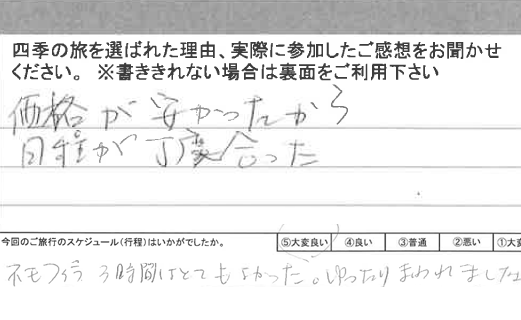 四季の旅を選ばれた理由、実際に参加したご感想をお聞かせ
ください。 ※書ききれない場合は裏面をご利用下さい
価格が安かったから
日程が丁度合った
今回のご旅行のスケジュール(行程)はいかがでしたか。 ⑤大変良い ④良い ③普通 ②悪い ①大
ネモフィラ 3時間はとてもよかった。ゆったりまわれました